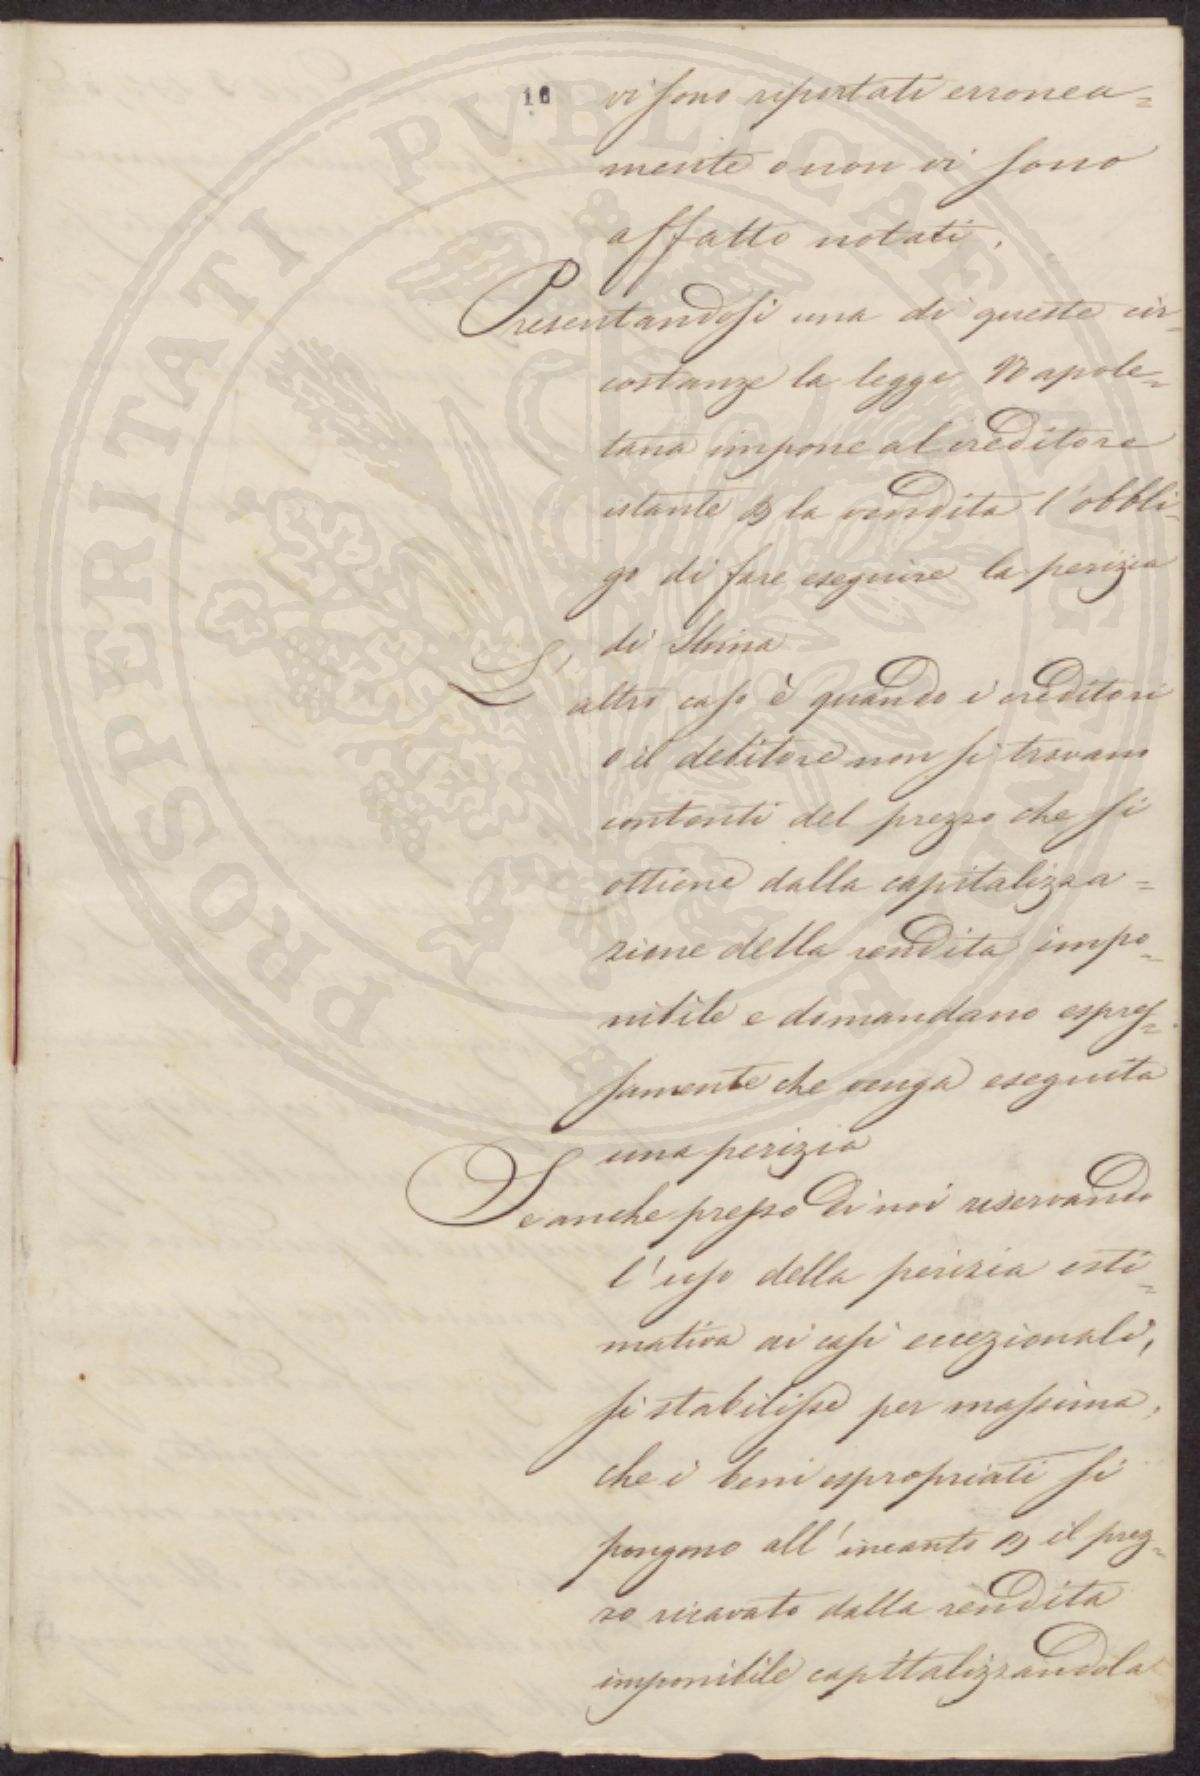 16
vi sono riportati erronea=
mente o non vi sono
affatto notati.
Presentandosi una di queste cir=
costanze la legge Napole=
tana impone al creditore
istante la vendita l'obbli=
go di fare eseguire la perizia
di Stima
L'altro caso è quando i creditori
o il debitore non si trovano
contenti del prezzo che si
ottiene dalla capitalizza=
zione della rendita impo=
nibile e domandano espres=
samente che venga eseguita
una perizia
Se anche presso di noi riservando
l'uso della perizia esti=
mativa ai casi eccezionali,
si stabilisse per massima,
che i beni espropriati si
pongono all'incanto il prez=
zo ricavato dalla rendita
imponibile capitalizzandola
PROSPERITATI PUBLICAE AUGENDAE